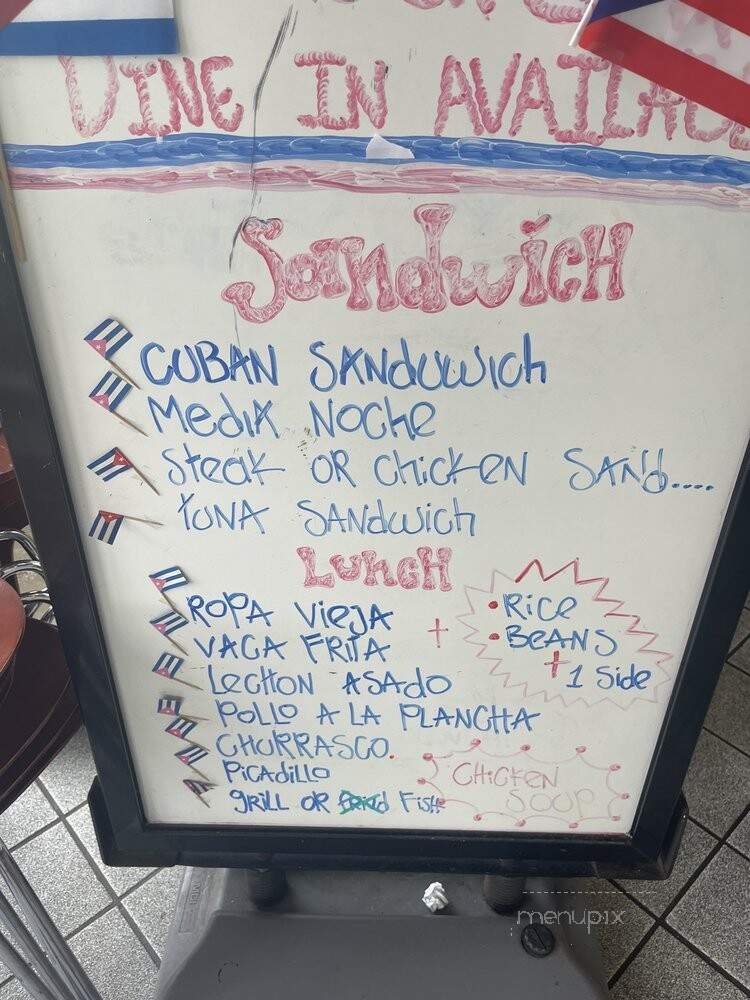 DINE IN AVAILAB
Sandwich
CUBAN SANDUWICH
MEDIA NOCHE
Steak OR Chicken SAND....
TUNA SANDwich
LUNCH
ROPA VIEJA
VACA FRITA
+
• RICE
• BEANS
+ 1 Side
LECHON ASADO
POLLO A LA PLANCHA
CHURRASCO.
PICADILLO
GRILL OR Fish
CHICKEN
SOUP
menupix